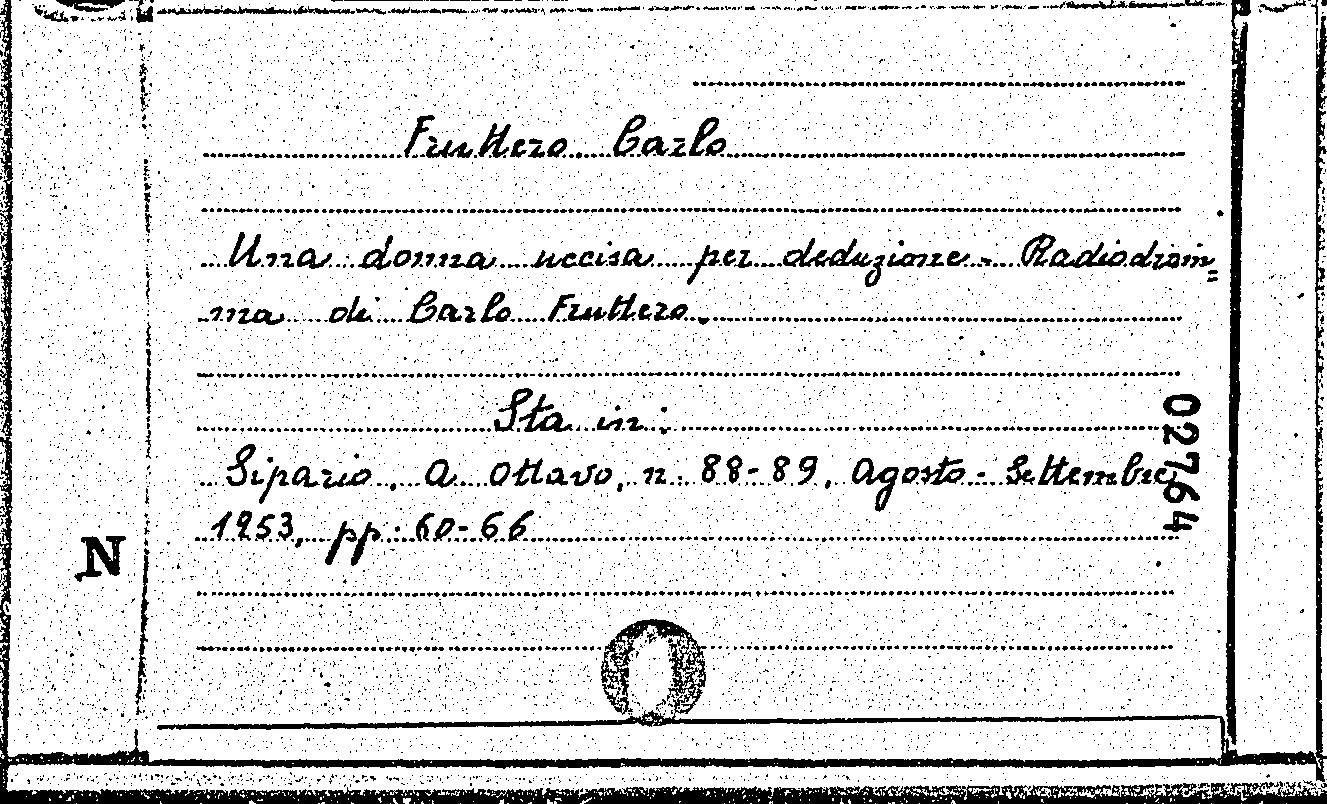 Fruttero. Carlo
Una donna uccisa per deduzione. Radiodram=
ma di Carlo Fruttero.
Sta in:
Sipario. A. Ottavo, n. 88-89, Agosto-Settembre
1953, pp. 60-66
02764
N